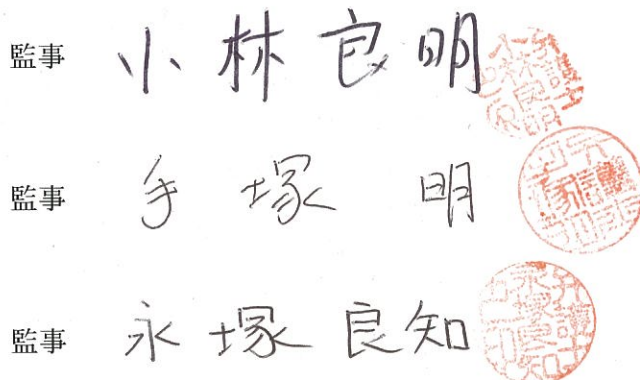 監事 小林良明
監事 手塚 明
監事 永塚良知